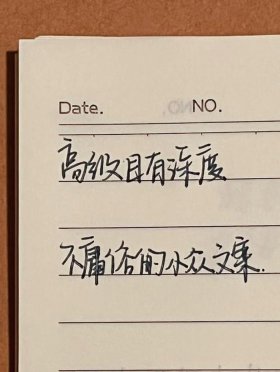 Date. NO.
高级且有深度
不庸俗的小众文案.